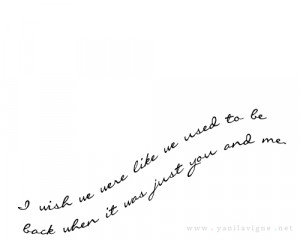 I wish we were like we used to be
back when it was just you and me.
www.yanilavigne.net